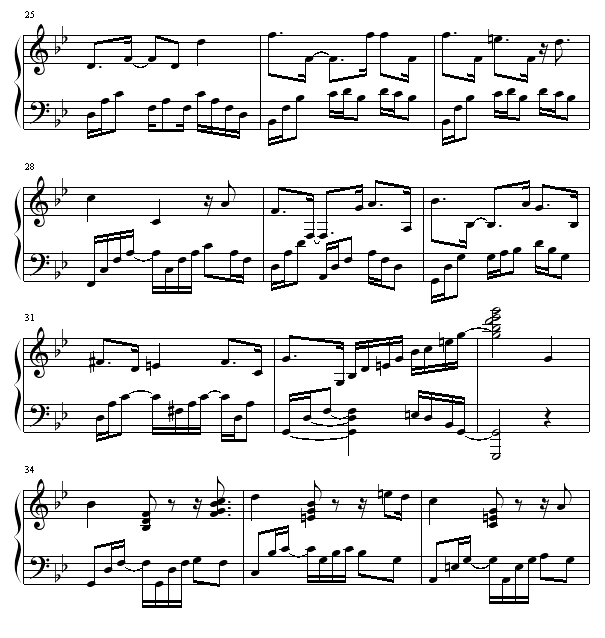 25
28
31
34